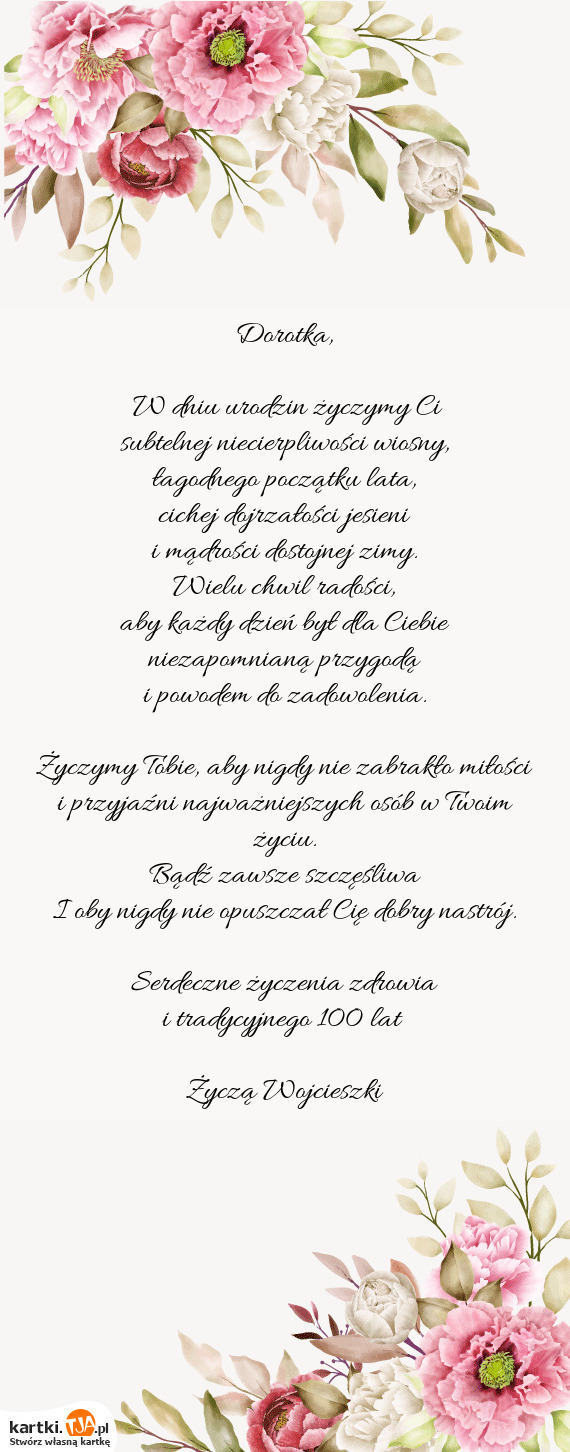 Dorotka,
W dniu urodzin życzymy Ci
subtelnej niecierpliwości wiosny,
łagodnego początku lata,
cichej dojrzałości jesieni
i mądrości dostojnej zimy.
Wielu chwil radości,
aby każdy dzień był dla Ciebie
niezapomnianą przygodą
i powodem do zadowolenia.
Życzymy Tobie, aby nigdy nie zabrakło miłości
i przyjaźni najważniejszych osób w Twoim
życiu.
Bądź zawsze szczęśliwa
I oby nigdy nie opuszczał Cię dobry nastrój.
Serdeczne życzenia zdrowia
i tradycyjnego 100 lat
Życzą Wojcieszki
kartki.TJA.pl
Stwórz własną kartkę